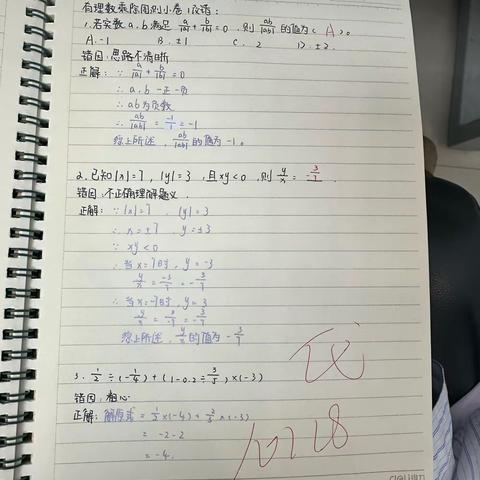 有理数乘除周测小卷1改错:
1.若实数a.b满足 a/|a| + b/|b| = 0, 则 ab/|ab| 的值为( A )。
A.-1 B.±1 C. 2 D.±2.
错因:思路不清晰
正解: ∵ a/|a| + b/|b| = 0
∴ a、b 一正一负
∴ ab为负数
∴ ab/|ab| = -1/1 = -1
综上所述, ab/|ab| 的值为 -1。
2.已知|x|=7, |y|=3, 且xy<0, 则 y/x = -3/7.
错因:不正确理解题义.
正解: ∵ |x|=7, |y|=3
∴ x=±7, y=±3
∵ xy<0
∴ 当x=7时, y=-3
y/x = -3/7 = -3/7
∴ 当x=-7时, y=3
y/x = 3/-7 = -3/7
综上所述, y/x 的值为 -3/7
3. 1/2 ÷ (-1/4) + (1-0.2÷3/5) × (-3)
错因:粗心
正解:解原式 = 1/2 ×(-4) + 2/3 ×(-3)
= -2-2
= -4.
优
10728
deli